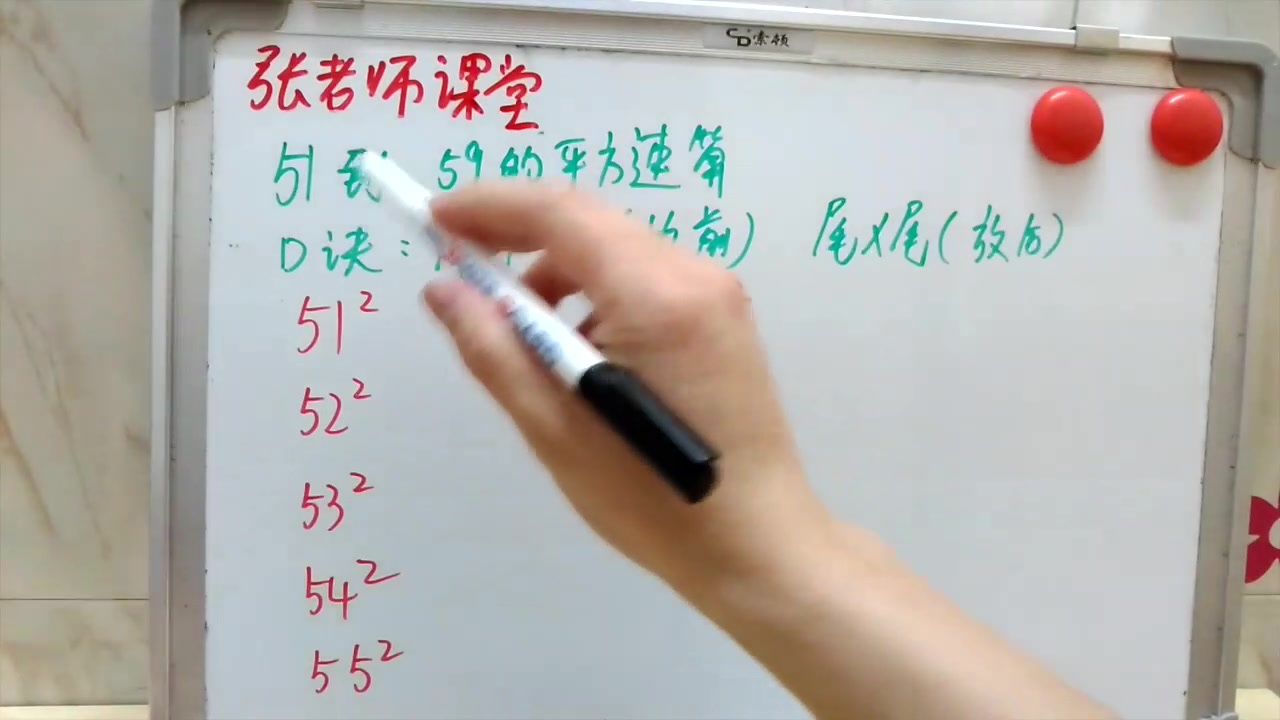 CD 索顿
张老师课堂
51到 59的平方速算
口诀: 前) 尾×尾(放后)
51²
52²
53²
54²
55²